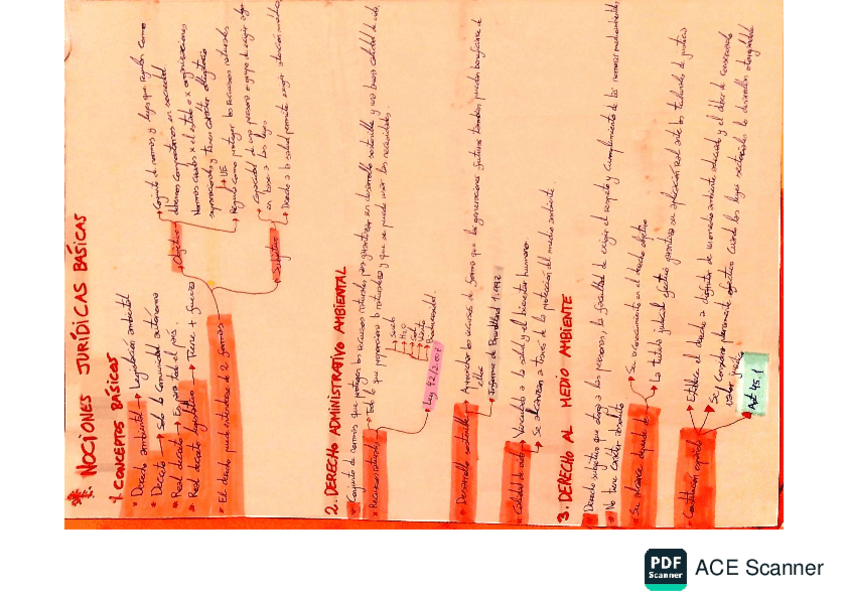 1. NOCIONES JURÍDICAS BÁSICAS
1. CONCEPTOS BÁSICOS
Derecho ambiental → Legislación ambiental
Decreto → Solo la Comunidad autónoma
Real decreto → Es para todo el país
Real decreto legislativo → Tiene + fuerza
El derecho puede entenderse de 2 formas
Objetivo
Conjunto de normas y leyes que regulan como
debemos comportarnos en sociedad.
Normas creadas x el estado o x organizaciones
supranacionales y tienen carácter obligatorio
→ UE
Regula como proteger los recursos naturales
Subjetivo
Capacidad de una persona o grupo de exigir algo
en base a las leyes
Derecho a la salud permite exigir atención médica
2. DERECHO ADMINISTRATIVO AMBIENTAL
Conjunto de normas que protegen los recursos naturales para garantizar un desarrollo sostenible y una buena calidad de vida.
Recursos naturales → Todo lo que proporciona la naturaleza y que se puede usar las necesidades.
Suelo
H2O
Sol
Viento
Biodiversidad
Ley 42/2007
Desarrollo sostenible → Aprovechar los recursos de forma que las generaciones futuras también puedan beneficiarse de
ellos
Informe de Brundtland 1.987
Calidad de vida → Vinculado a la salud y el bienestar humano
→ Se alcanza a través de la protección del medio ambiente.
3. DERECHO AL MEDIO AMBIENTE
Derecho subjetivo que otorga a las personas, la facultad de exigir el respeto y cumplimiento de las normas medioambientales
No tiene carácter absoluto
Su alcance depende de → Su reconocimiento en el derecho objetivo
→ La tutela judicial efectiva garantiza su aplicación real ante los tribunales de justicia
Constitución española → Establece el derecho a disfrutar de un medio ambiente adecuado y el deber de conservarlo
→ Se considera plenamente efectivo cuando las leyes sectoriales lo desarrollan otorgándole
valor jurídico
Art 45.1
PDF
Scanner
ACE Scanner